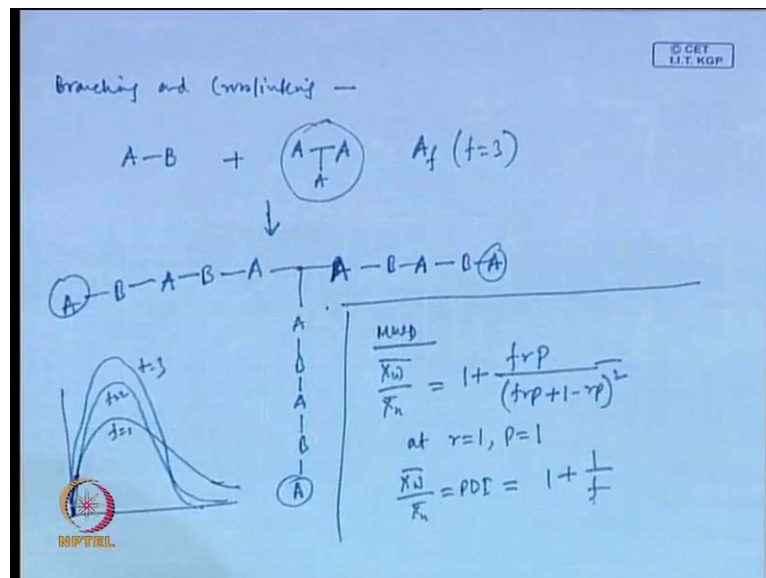 © CET
I.I.T. KGP
Branching and Crosslinking —
A—B + A A A_f (f=3)
A
A—B—A—B—A— A—B—A—B—A
A
B
A
B
A
f=3
f=2
f=1
MWD
X̄w/X̄n = 1 + frp/(frp+1-rp)²
at r=1, P=1
X̄w/X̄n = PDI = 1 + 1/f
NPTEL